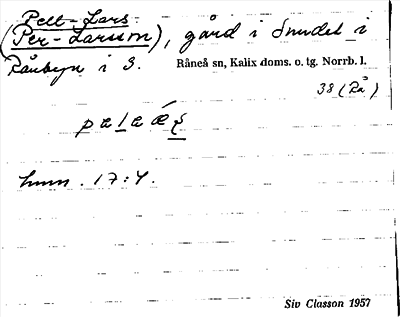 Pell-Lars
(Per-Larsson), gård i Sundet i
Rånbyn i S. Råneå sn, Kalix doms. o. tg. Norrb. l.
38 (Rå)
hmn. 17:4.
Siv Classon 1957